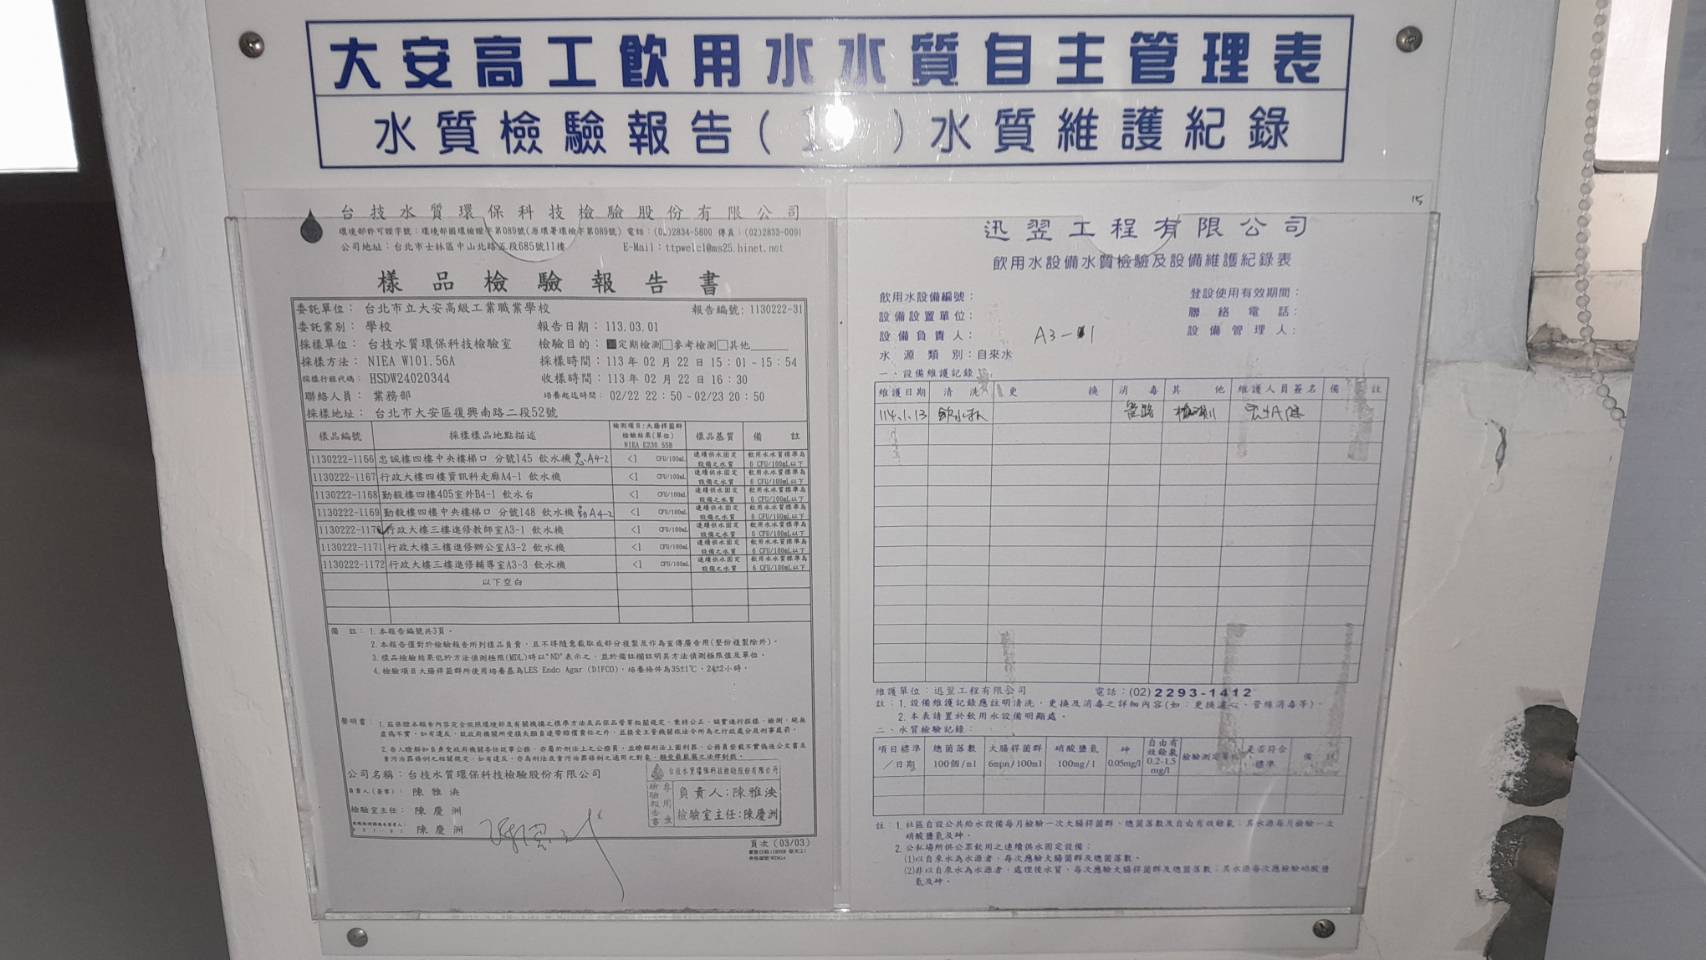 大安高工飲用水水質自主管理表
水質檢驗報告( )水質維護紀錄
台技水質環保科技檢驗股份有限公司
環境部許可證字號：環境部國環檢證字第089號(原環署環檢字第089號) 電話：(02)2834-5800 傳真：(02)2833-0091
公司地址：台北市士林區中山北路五段685號11樓 E-Mail：ttpwelcl@ms25.hinet.net
樣品檢驗報告書
委託單位：台北市立大安高級工業職業學校 報告編號：1130222-31
委託業別：學校 報告日期：113.03.01
採樣單位：台技水質環保科技檢驗室 檢驗目的：■定期檢測□參考檢測□其他
採樣方法：NIEA W101.56A 採樣時間：113 年 02 月 22 日 15：01-15：54
採樣行程代碼：HSDW24020344 收樣時間：113 年 02 月 22 日 16：30
聯絡人員：業務部 培養起迄時間：02/22 22：50-02/23 20：50
採樣地址：台北市大安區復興南路二段52號
樣品編號 採樣樣品地點描述 檢測項目：大腸桿菌群 檢驗結果(單位) NIEA E230 55B 樣品基質 備 註
1130222-1166 忠誠樓四樓中央樓梯口 分號145 飲水機 忠A4-2 <1 CFU/100mL 連續供水固定設備之水質 飲用水水質標準為 6 CFU/100mL以下
1130222-1167 行政大樓四樓資訊科走廊A4-1 飲水機 <1 CFU/100mL 連續供水固定設備之水質 飲用水水質標準為 6 CFU/100mL以下
1130222-1168 勤毅樓四樓405室外B4-1 飲水台 <1 CFU/100mL 連續供水固定設備之水質 飲用水水質標準為 6 CFU/100mL以下
1130222-1169 勤毅樓四樓中央樓梯口 分號148 飲水機 勤A4-2 <1 CFU/100mL 連續供水固定設備之水質 飲用水水質標準為 6 CFU/100mL以下
1130222-1170 行政大樓三樓進修教師室A3-1 飲水機 <1 CFU/100mL 連續供水固定設備之水質 飲用水水質標準為 6 CFU/100mL以下
1130222-1171 行政大樓三樓進修辦公室A3-2 飲水機 <1 CFU/100mL 連續供水固定設備之水質 飲用水水質標準為 6 CFU/100mL以下
1130222-1172 行政大樓三樓進修輔導室A3-3 飲水機 <1 CFU/100mL 連續供水固定設備之水質 飲用水水質標準為 6 CFU/100mL以下
以下空白
備 註：1.本報告編號共3頁。
2.本報告僅對於檢驗報告所列樣品負責，且不得隨意截取或部分複製及作為宣傳廣告用(整份複製除外)。
3.樣品檢驗結果低於方法偵測極限(MDL)時以"ND"表示之，並於備註欄註明其方法偵測極限值及單位。
4.檢驗項目大腸桿菌群所使用培養基為LES Endo Agar (DIFCO)，培養條件為35±1℃，24±2小時。
聲明書：
公司名稱：台技水質環保科技檢驗股份有限公司
負責人(簽章)： 陳雅泱
檢驗室主任： 陳慶洲
陳慶洲
台技水質環保科技檢驗股份有限公司
檢驗報告書專用章
負責人：陳雅泱
檢驗室主任：陳慶洲
頁次 (03/03)
15
迅翌工程有限公司
飲用水設備水質檢驗及設備維護紀錄表
飲用水設備編號： 登設使用有效期間：
設備設置單位： 聯絡電話：
設備負責人： A3-1 設備管理人：
水源類別：自來水
一、設備維護記錄：
維護日期 清洗 更換 消毒 其他 維護人員簽名 備註
114.1.13 飲水機 管路
維護單位：迅翌工程有限公司 電話：(02)2293-1412
註：1.設備維護記錄應註明清洗，更換及消毒之詳細內容(如：更換濾心、管線消毒等)。
2.本表請置於飲用水設備明顯處。
二、水質檢驗記錄：
項目標準／日期 總菌落數 100個/ml 大腸桿菌群 6mpn/100ml 硝酸鹽氮 100mg/l 砷 0.05mg/l 自由有效餘氯 0.2-1.5 mg/l 檢驗測定單位 是否符合標準 備註
註：1.社區自設公共給水設備每月檢驗一次大腸桿菌群、總菌落數及自由有效餘氯；其水源每月檢驗一次硝酸鹽氮及砷。
2.公私場所供公眾飲用之連續供水固定設備：
(1)以自來水為水源者，每次應驗大腸菌群及總菌落數。
(2)非以自來水為水源者，處理後水質，每次應驗大腸桿菌群及總菌落數；其水源每次應檢驗硝酸鹽氮及砷。